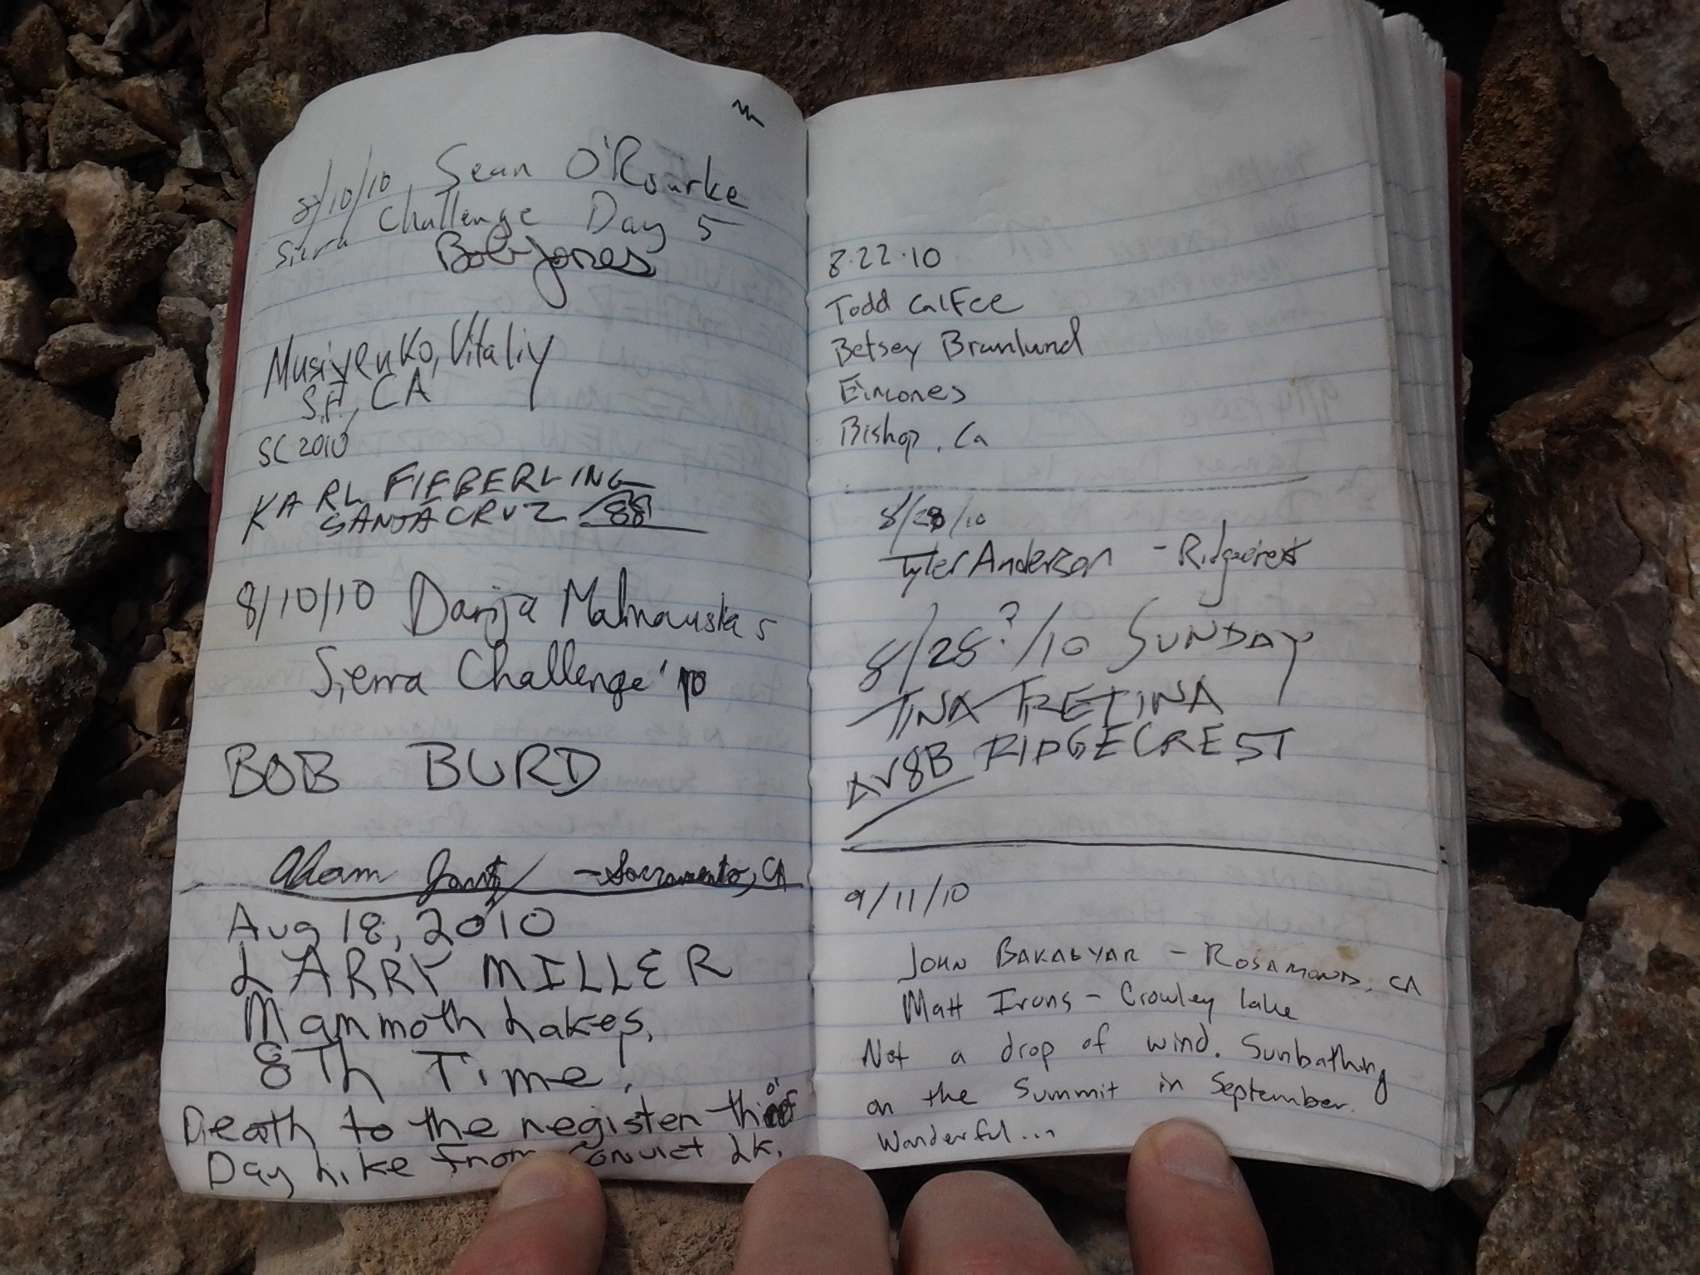 8/10/10 Sean O'Rourke
Sierra Challenge Day 5
Bob Jones
Musiyenko, Vitaliy
S.F., CA
SC 2010
KARL FIEBERLING
SANTA CRUZ 88
8/10/10 Darija Malinauskas
Sierra Challenge '10
BOB BURD
Adam Jantz - Sacramento, CA
Aug 18, 2010
LARRY MILLER
Mammoth Lakes,
8Th Time!
Death to the register thief
Day hike from Convict Lk.
8.22.10
Todd Calfee
Betsey Branlund
Bishop, Ca
8/28/10
Tyler Anderson - Ridgecrest
8/28?/10 SUNDAY
TINA TRETINA
AV8B RIDGECREST
9/11/10
JOHN BAKABYAR - ROSAMOND, CA
Matt Irons - Crowley lake
Not a drop of wind. Sunbathing
on the Summit in September.
Wonderful...